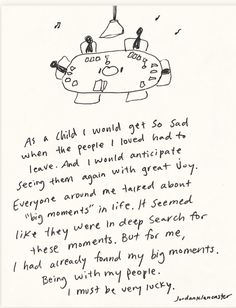 As a child I would get so sad
when the people I loved had to
leave. And I would anticipate
seeing them again with great joy.
Everyone around me talked about
"big moments" in life. It seemed
like they were in deep search for
these moments. But for me,
I had already found my big moments.
Being with my people.
I must be very lucky.